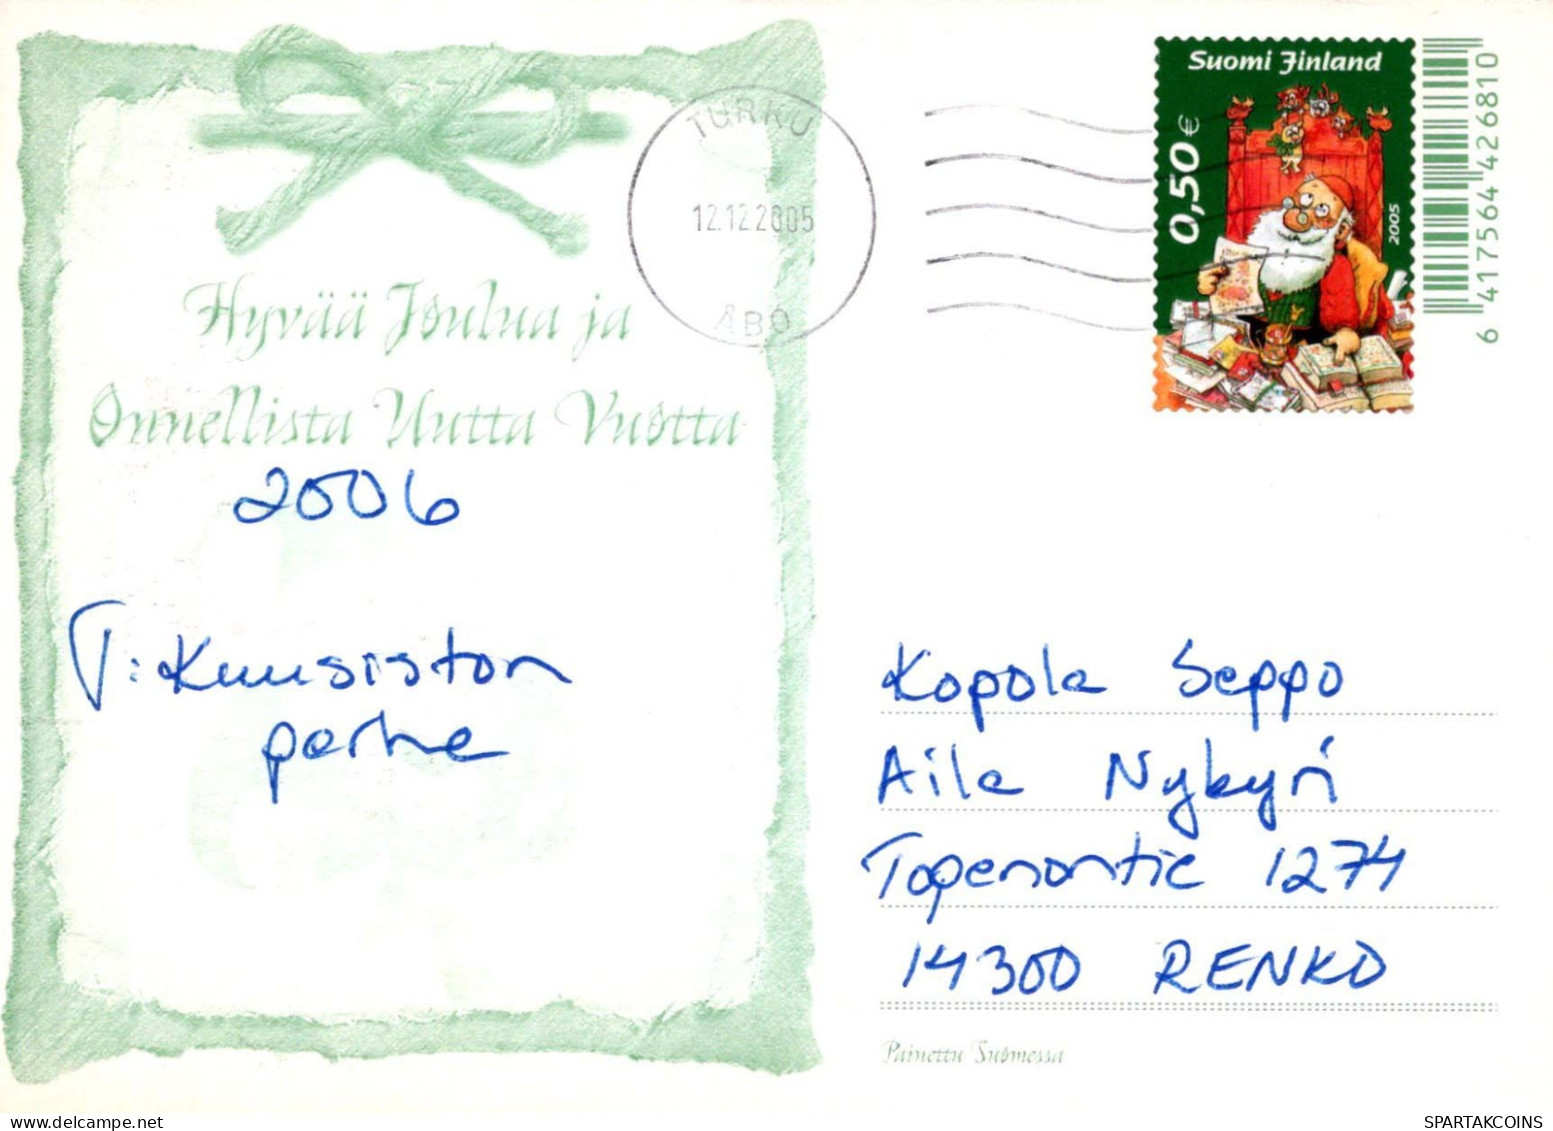 Suomi Finland
0,50 €
2005
6 417564 426810
TURKU
12.12.2005
ÅBO
Hyvää Joulua ja
Onnellista Uutta Vuotta
2006
T: Kuusiston
perhe
Kopola Seppo
Aila Nykyri
Topenontie 1274
14300 RENKO
Painettu Suomessa
SPARTAKCOINS